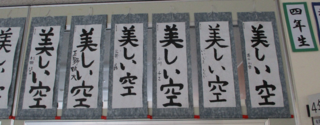 美しい空
美しい空
美しい空
美しい空
美しい空
美しい空
四年生